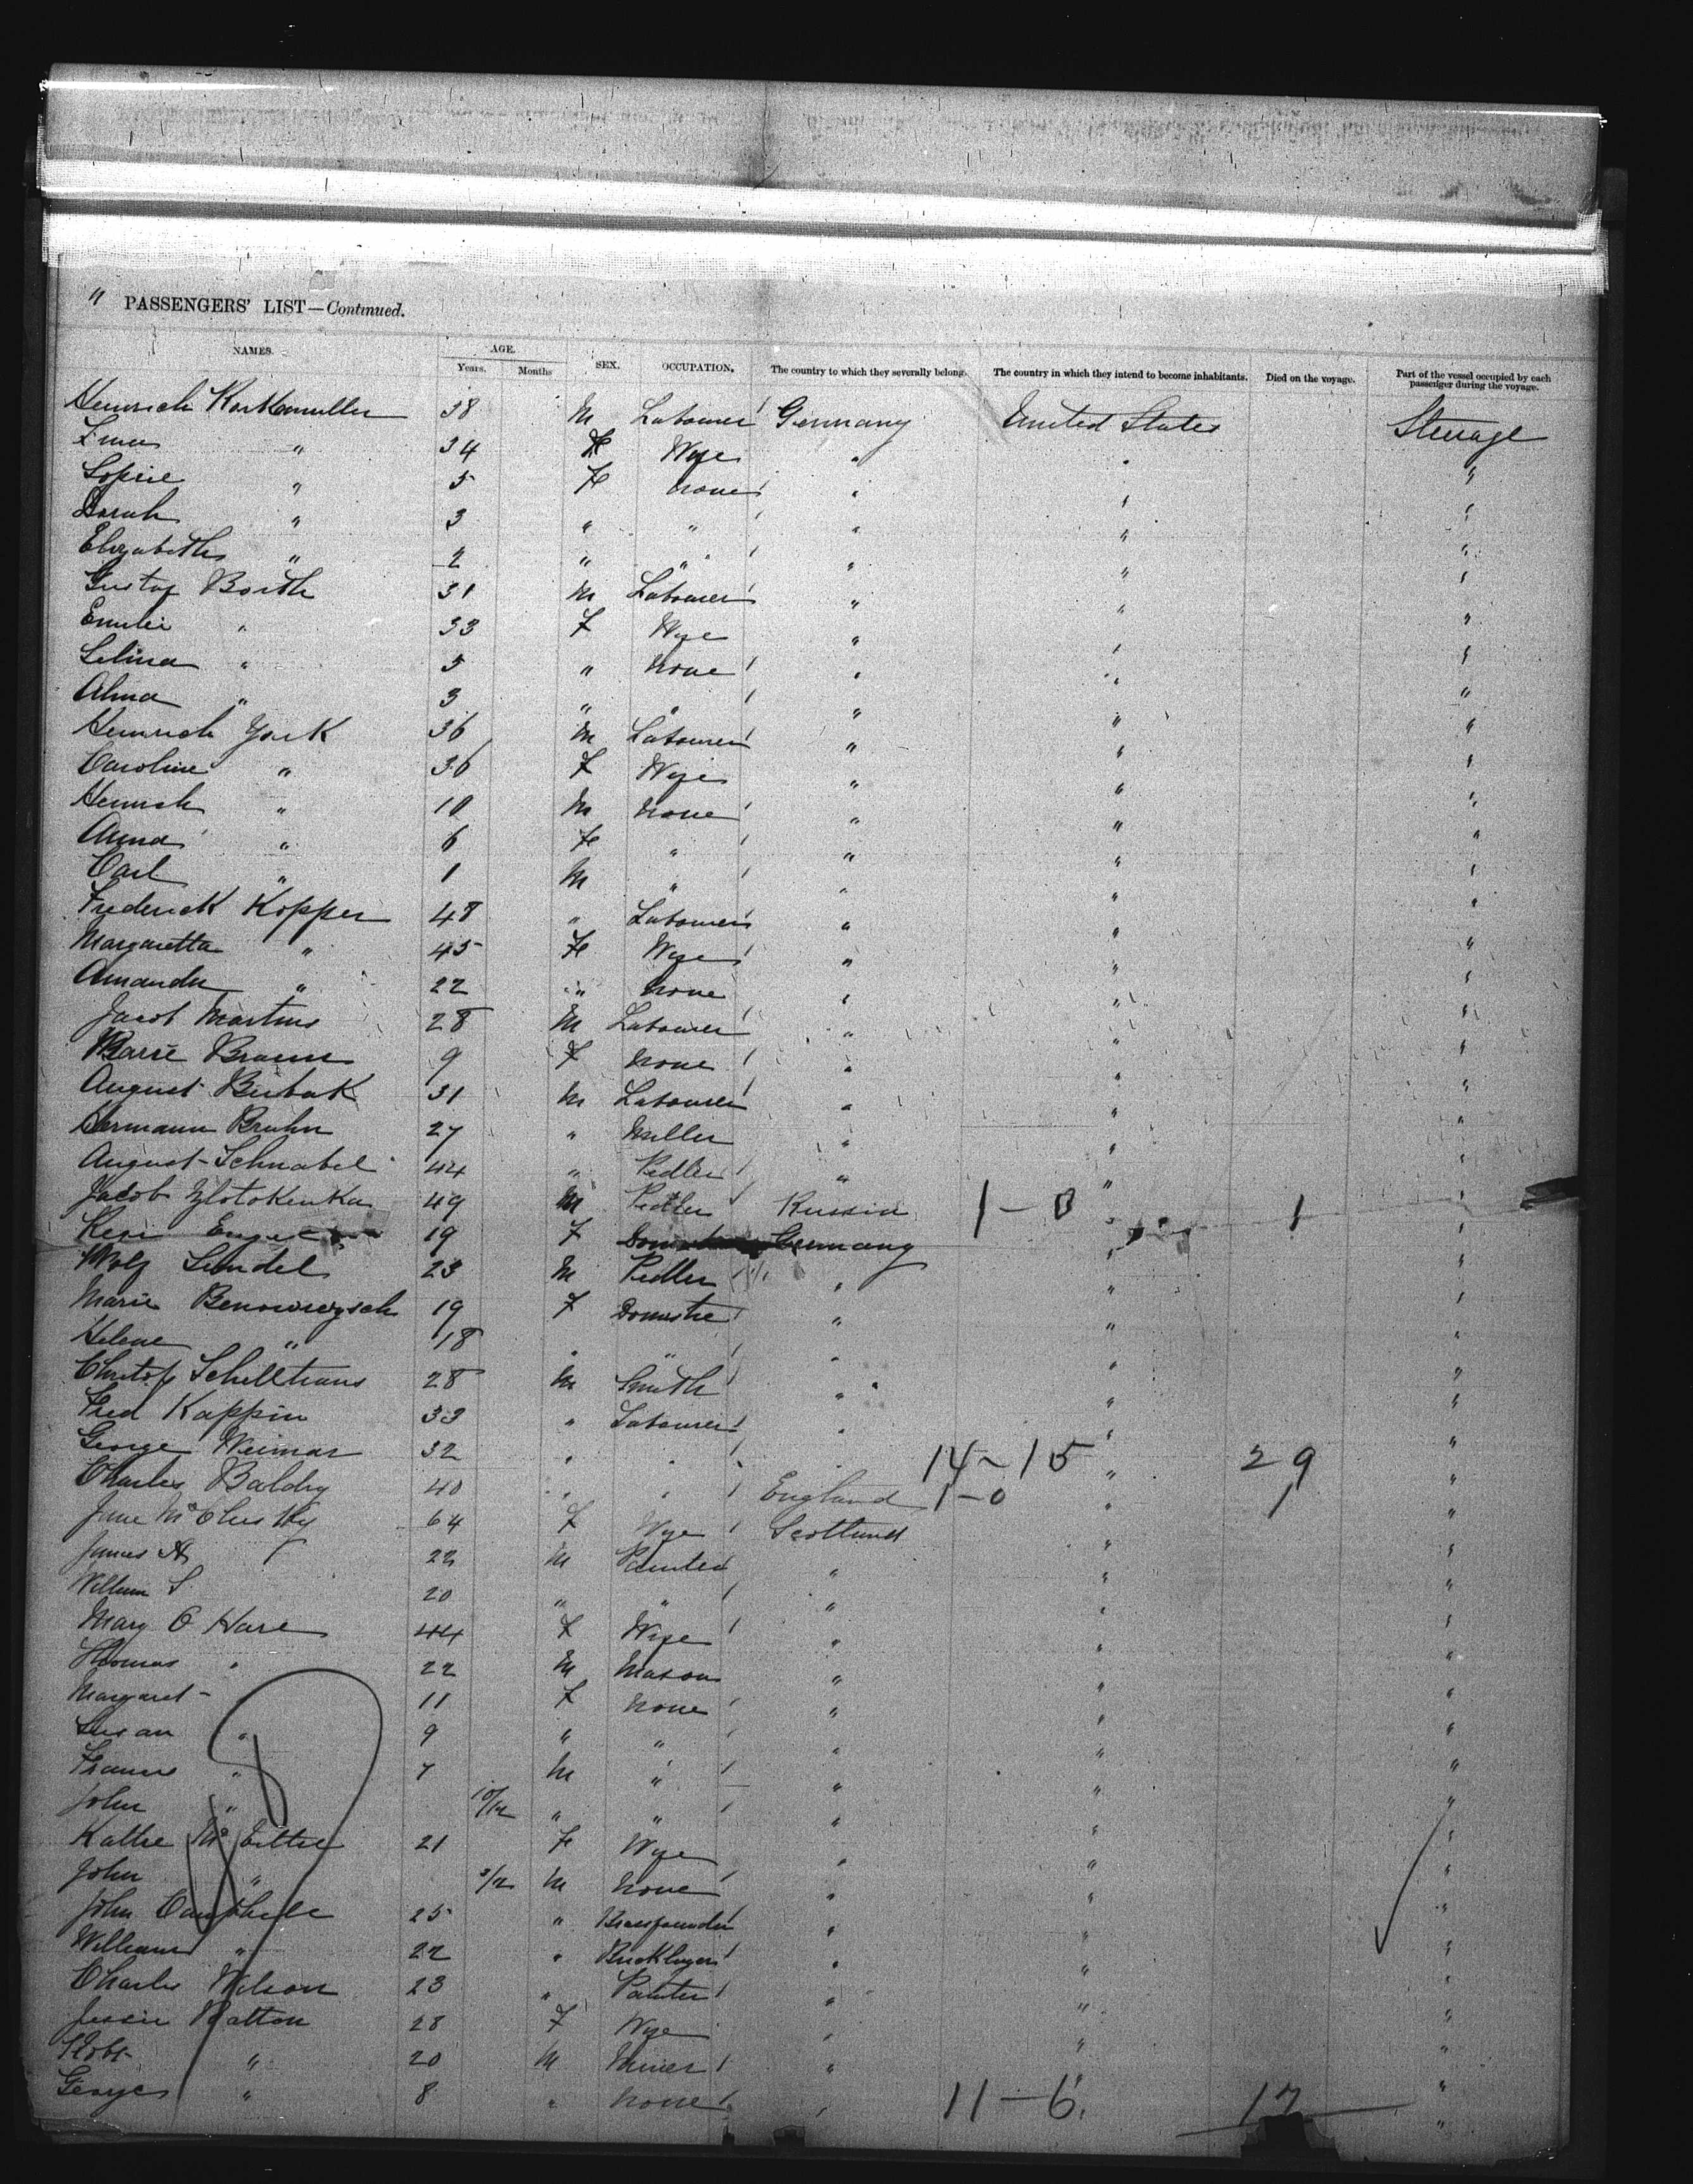 " PASSENGERS' LIST—Continued.
NAMES. AGE. Years. Months SEX. OCCUPATION. The country to which they severally belong. The country in which they intend to become inhabitants. Died on the voyage. Part of the vessel occupied by each passenger during the voyage.
Heinrich 38 M Labourer Germany United States Steerage
" 34 F Wife " " "
Sophie " 5 F None " " "
Sarah " 3 " " " " "
Elizabeth " 2 " " " " "
Gustaf Borth 31 M Labourer " " "
Emilie " 33 F Wife " " "
Selina " 5 " None " " "
Alma " 3 " " " " "
Heinrich York 36 M Labourer " " "
Caroline " 36 F Wife " " "
Heinrich " 10 M None " " "
Anna " 6 F " " " "
Carl " 1 M " " " "
Frederick Kopper 48 " Labourer " " "
Margaretta " 45 F Wife " " "
Amanda " 22 " None " " "
Jacob Martins 28 M Labourer " " "
Marie Braun 9 F None " " "
August 31 M Labourer " " "
Hermann Bruhn 27 " Miller " " "
August Schnabel 44 " Pedler " " "
Jacob Zlotokenka 49 M Pedler Russia 1 - 0 " 1 "
19 F Germany " "
Wolf Sendel 23 M Pedler " " "
Marie 19 F Domestic " " "
Helene " 18 " " " " "
Christof 28 M Smith " " "
Fred Kappin 33 " Labourer " " "
George Weimar 32 " " " 14 - 15 " 29 "
Charles Baldry 40 " " England 1 - 0 " 1 "
Jane McClusky 64 F Wife Scotland " "
James A 22 M Painter " " "
William S 20 " " " " "
Mary O Hare 44 F Wife " " "
Thomas " 22 M Mason " " "
Margaret " 11 F None " " "
Susan " 9 " " " " "
Francis " 7 M " " " "
John " 10/12 " " " " "
21 F Wife " " "
John " M None " " "
John Campbell 25 " Brassfounder " " "
William " 22 " Bricklayer " " "
Charles Wilson 23 " Painter " " "
Jessie 28 F Wife " " "
Robt " 20 M Miner " " "
George " 8 " None " 11 - 6 " 17 "